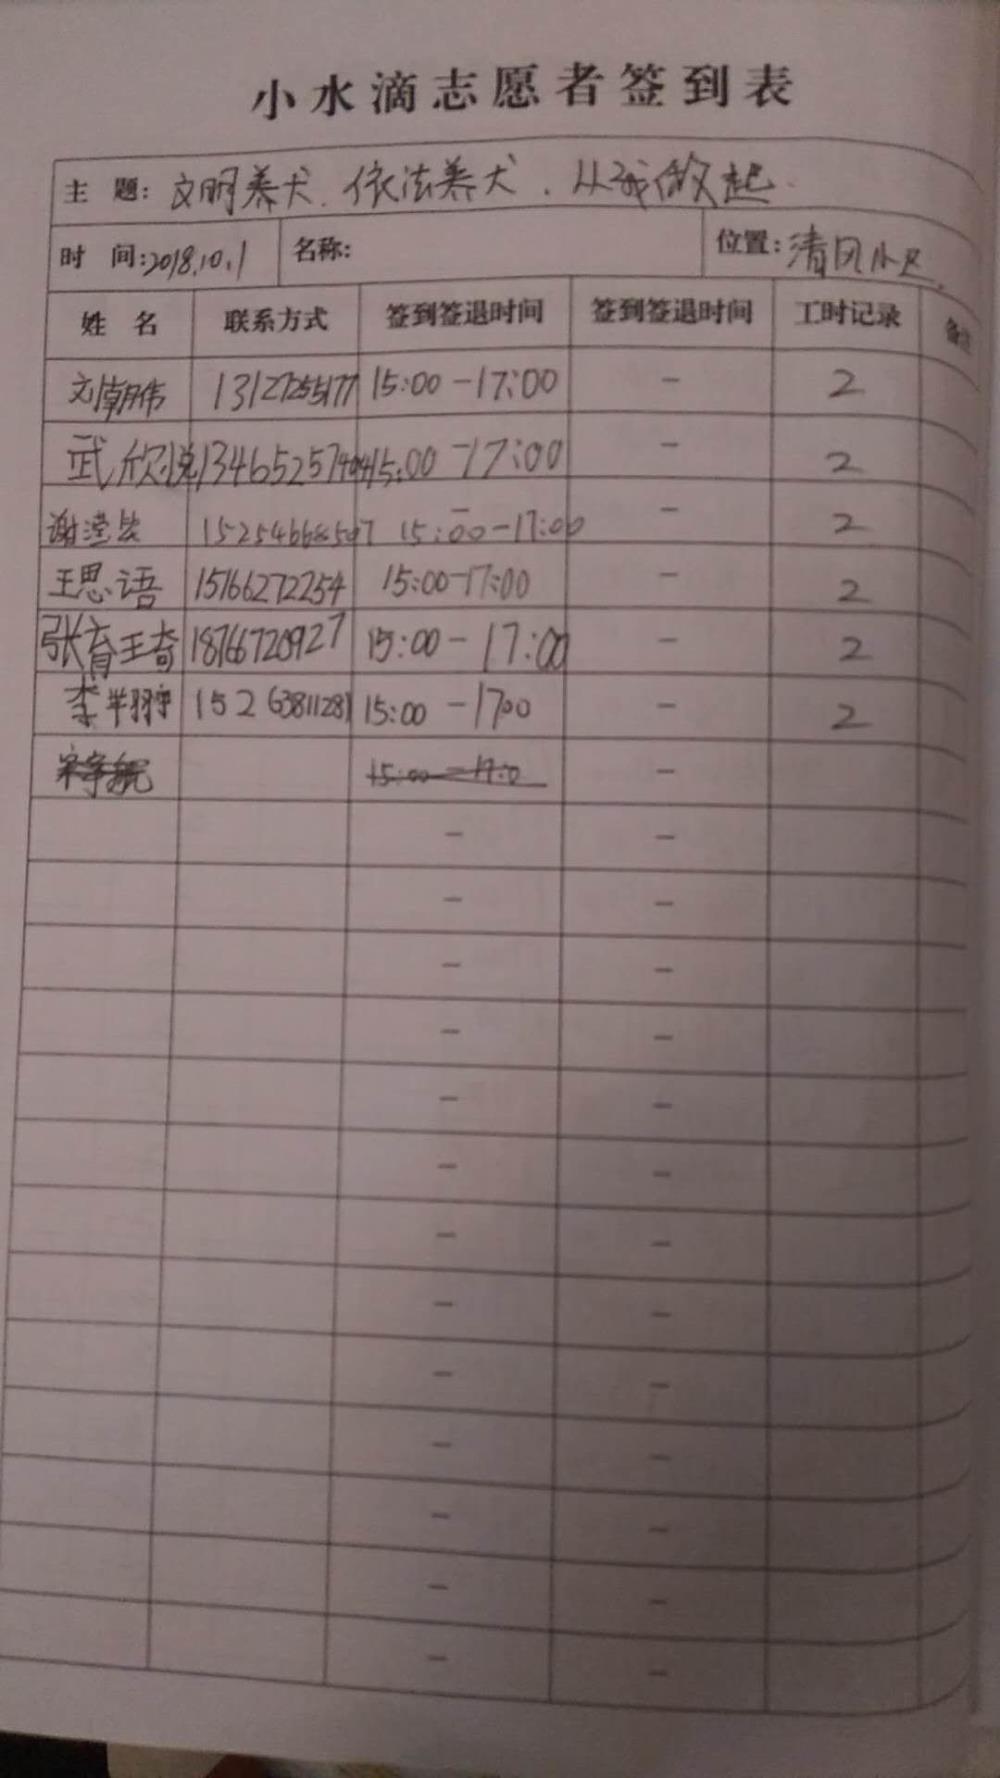 小水滴志愿者签到表
主 题: 文明养犬.依法养犬.从我做起.
时 间:2018.10.1 名称: 位置:清风小区.
姓 名 联系方式 签到签退时间 签到签退时间 工时记录 备注
刘朝伟 13127255177 15:00-17:00 - 2
武欣悦 15:00-17:00 - 2
15:00-17:00 - 2
王思语 15166272254 15:00-17:00 - 2
张育琦 18766720927 15:00-17:00 - 2
李 15263811281 15:00-1700 - 2
-
- -
- -
- -
- -
- -
- -
- -
- -
- -
- -
- -
- -
- -